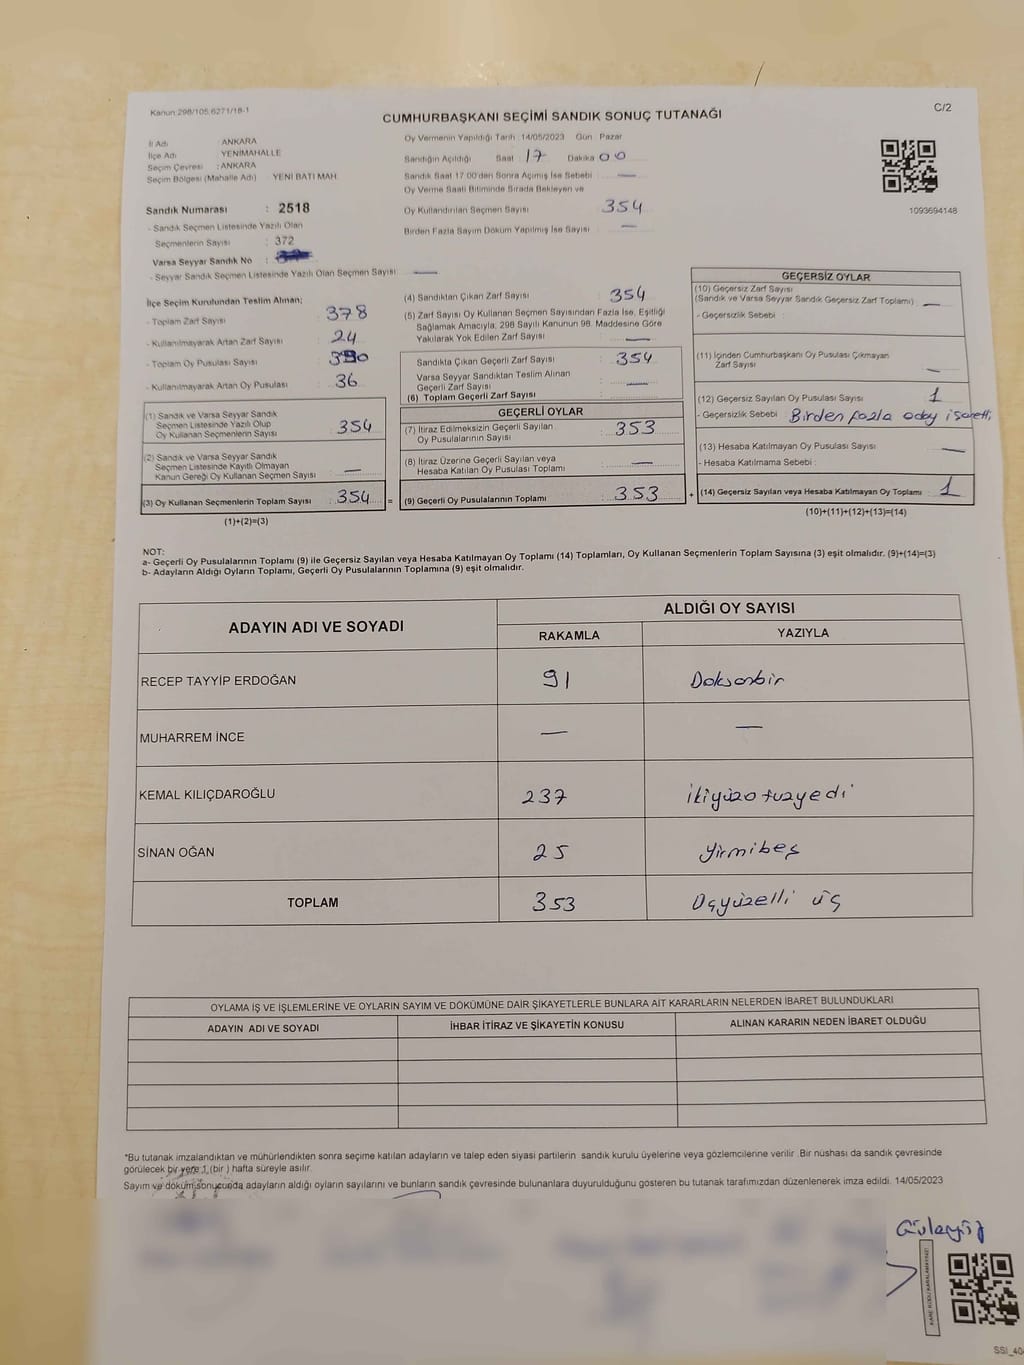 Kanun:298/105,6271/18-1
C/2
CUMHURBAŞKANI SEÇİMİ SANDIK SONUÇ TUTANAĞI
İl Adı ANKARA
İlçe Adı YENİMAHALLE
Seçim Çevresi : ANKARA
Seçim Bölgesi (Mahalle Adı) YENİ BATI MAH.
Sandık Numarası : 2518
- Sandık Seçmen Listesinde Yazılı Olan
Seçmenlerin Sayısı : 372
Varsa Seyyar Sandık No :
- Seyyar Sandık Seçmen Listesinde Yazılı Olan Seçmen Sayısı —
Oy Vermenin Yapıldığı Tarih :14/05/2023 Gün : Pazar
Sandığın Açıldığı Saat : 17 Dakika 00
Sandık Saat 17.00'den Sonra Açımış İse Sebebi —
Oy Verme Saati Bitiminde Sırada Bekleyen ve
Oy Kullandırılan Seçmen Sayısı 354
Birden Fazla Sayım Döküm Yapılmış İse Sayısı —
1093694148
İlçe Seçim Kurulundan Teslim Alınan;
- Toplam Zarf Sayısı : 378
- Kullanılmayarak Artan Zarf Sayısı : 24
- Toplam Oy Pusulası Sayısı : 390
- Kullanılmayarak Artan Oy Pusulası : 36
(1) Sandık ve Varsa Seyyar Sandık
Seçmen Listesinde Yazılı Olup
Oy Kullanan Seçmenlerin Sayısı : 354
(2) Sandık ve Varsa Seyyar Sandık
Seçmen Listesinde Kayıtlı Olmayan
Kanun Gereği Oy Kullanan Seçmen Sayısı : —
(3) Oy Kullanan Seçmenlerin Toplam Sayısı : 354 =
(1)+(2)=(3)
(4) Sandıktan Çıkan Zarf Sayısı : 354
(5) Zarf Sayısı Oy Kullanan Seçmen Sayısından Fazla İse, Eşitliği
Sağlamak Amacıyla, 298 Sayılı Kanunun 98. Maddesine Göre
Yakılarak Yok Edilen Zarf Sayısı : —
Sandıkta Çıkan Geçerli Zarf Sayısı : 354
Varsa Seyyar Sandıktan Teslim Alınan
Geçerli Zarf Sayısı : —
(6) Toplam Geçerli Zarf Sayısı :
GEÇERLİ OYLAR
(7) İtiraz Edilmeksizin Geçerli Sayılan
Oy Pusulalarının Sayısı : 353
(8) İtiraz Üzerine Geçerli Sayılan veya
Hesaba Katılan Oy Pusulası Toplamı : —
(9) Geçerli Oy Pusulalarının Toplamı : 353 +
GEÇERSİZ OYLAR
(10) Geçersiz Zarf Sayısı
(Sandık ve Varsa Seyyar Sandık Geçersiz Zarf Toplamı) : —
- Geçersizlik Sebebi :
(11) İçinden Cumhurbaşkanı Oy Pusulası Çıkmayan
Zarf Sayısı : —
(12) Geçersiz Sayılan Oy Pusulası Sayısı : 1
- Geçersizlik Sebebi Birden fazla aday işaretli
(13) Hesaba Katılmayan Oy Pusulası Sayısı : —
- Hesaba Katılmama Sebebi :
(14) Geçersiz Sayılan veya Hesaba Katılmayan Oy Toplamı : 1
(10)+(11)+(12)+(13)=(14)
NOT:
a- Geçerli Oy Pusulalarının Toplamı (9) ile Geçersiz Sayılan veya Hesaba Katılmayan Oy Toplamı (14) Toplamları, Oy Kullanan Seçmenlerin Toplam Sayısına (3) eşit olmalıdır. (9)+(14)=(3)
b- Adayların Aldığı Oyların Toplamı, Geçerli Oy Pusulalarının Toplamına (9) eşit olmalıdır.
ADAYIN ADI VE SOYADI
ALDIĞI OY SAYISI
RAKAMLA YAZIYLA
RECEP TAYYİP ERDOĞAN 91 Doksanbir
MUHARREM İNCE — —
KEMAL KILIÇDAROĞLU 237 ikiyüzotuzyedi
SİNAN OĞAN 25 yirmibeş
TOPLAM 353 Üçyüzelli üç
OYLAMA İŞ VE İŞLEMLERİNE VE OYLARIN SAYIM VE DÖKÜMÜNE DAİR ŞİKAYETLERLE BUNLARA AİT KARARLARIN NELERDEN İBARET BULUNDUKLARI
ADAYIN ADI VE SOYADI İHBAR İTİRAZ VE ŞİKAYETİN KONUSU ALINAN KARARIN NEDEN İBARET OLDUĞU
*Bu tutanak imzalandıktan ve mühürlendikten sonra seçime katılan adayların ve talep eden siyasi partilerin sandık kurulu üyelerine veya gözlemcilerine verilir .Bir nüshası da sandık çevresinde
görülecek bir yere 1 (bir ) hafta süreyle asılır.
Sayım ve döküm sonucunda adayların aldığı oyların sayılarını ve bunların sandık çevresinde bulunanlara duyurulduğunu gösteren bu tutanak tarafımızdan düzenlenerek imza edildi. 14/05/2023
KARE KODU KARALAMAYINIZ!